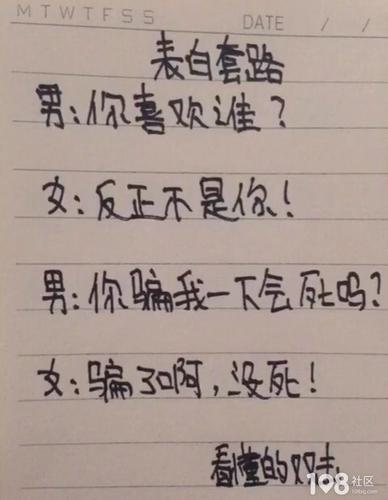 M T W T F S S DATE / /
表白套路
男:你喜欢谁?
女:反正不是你!
男:你骗我一下会死吗?
女:骗了啊,没死!
看懂的双击
108社区
108sq.com